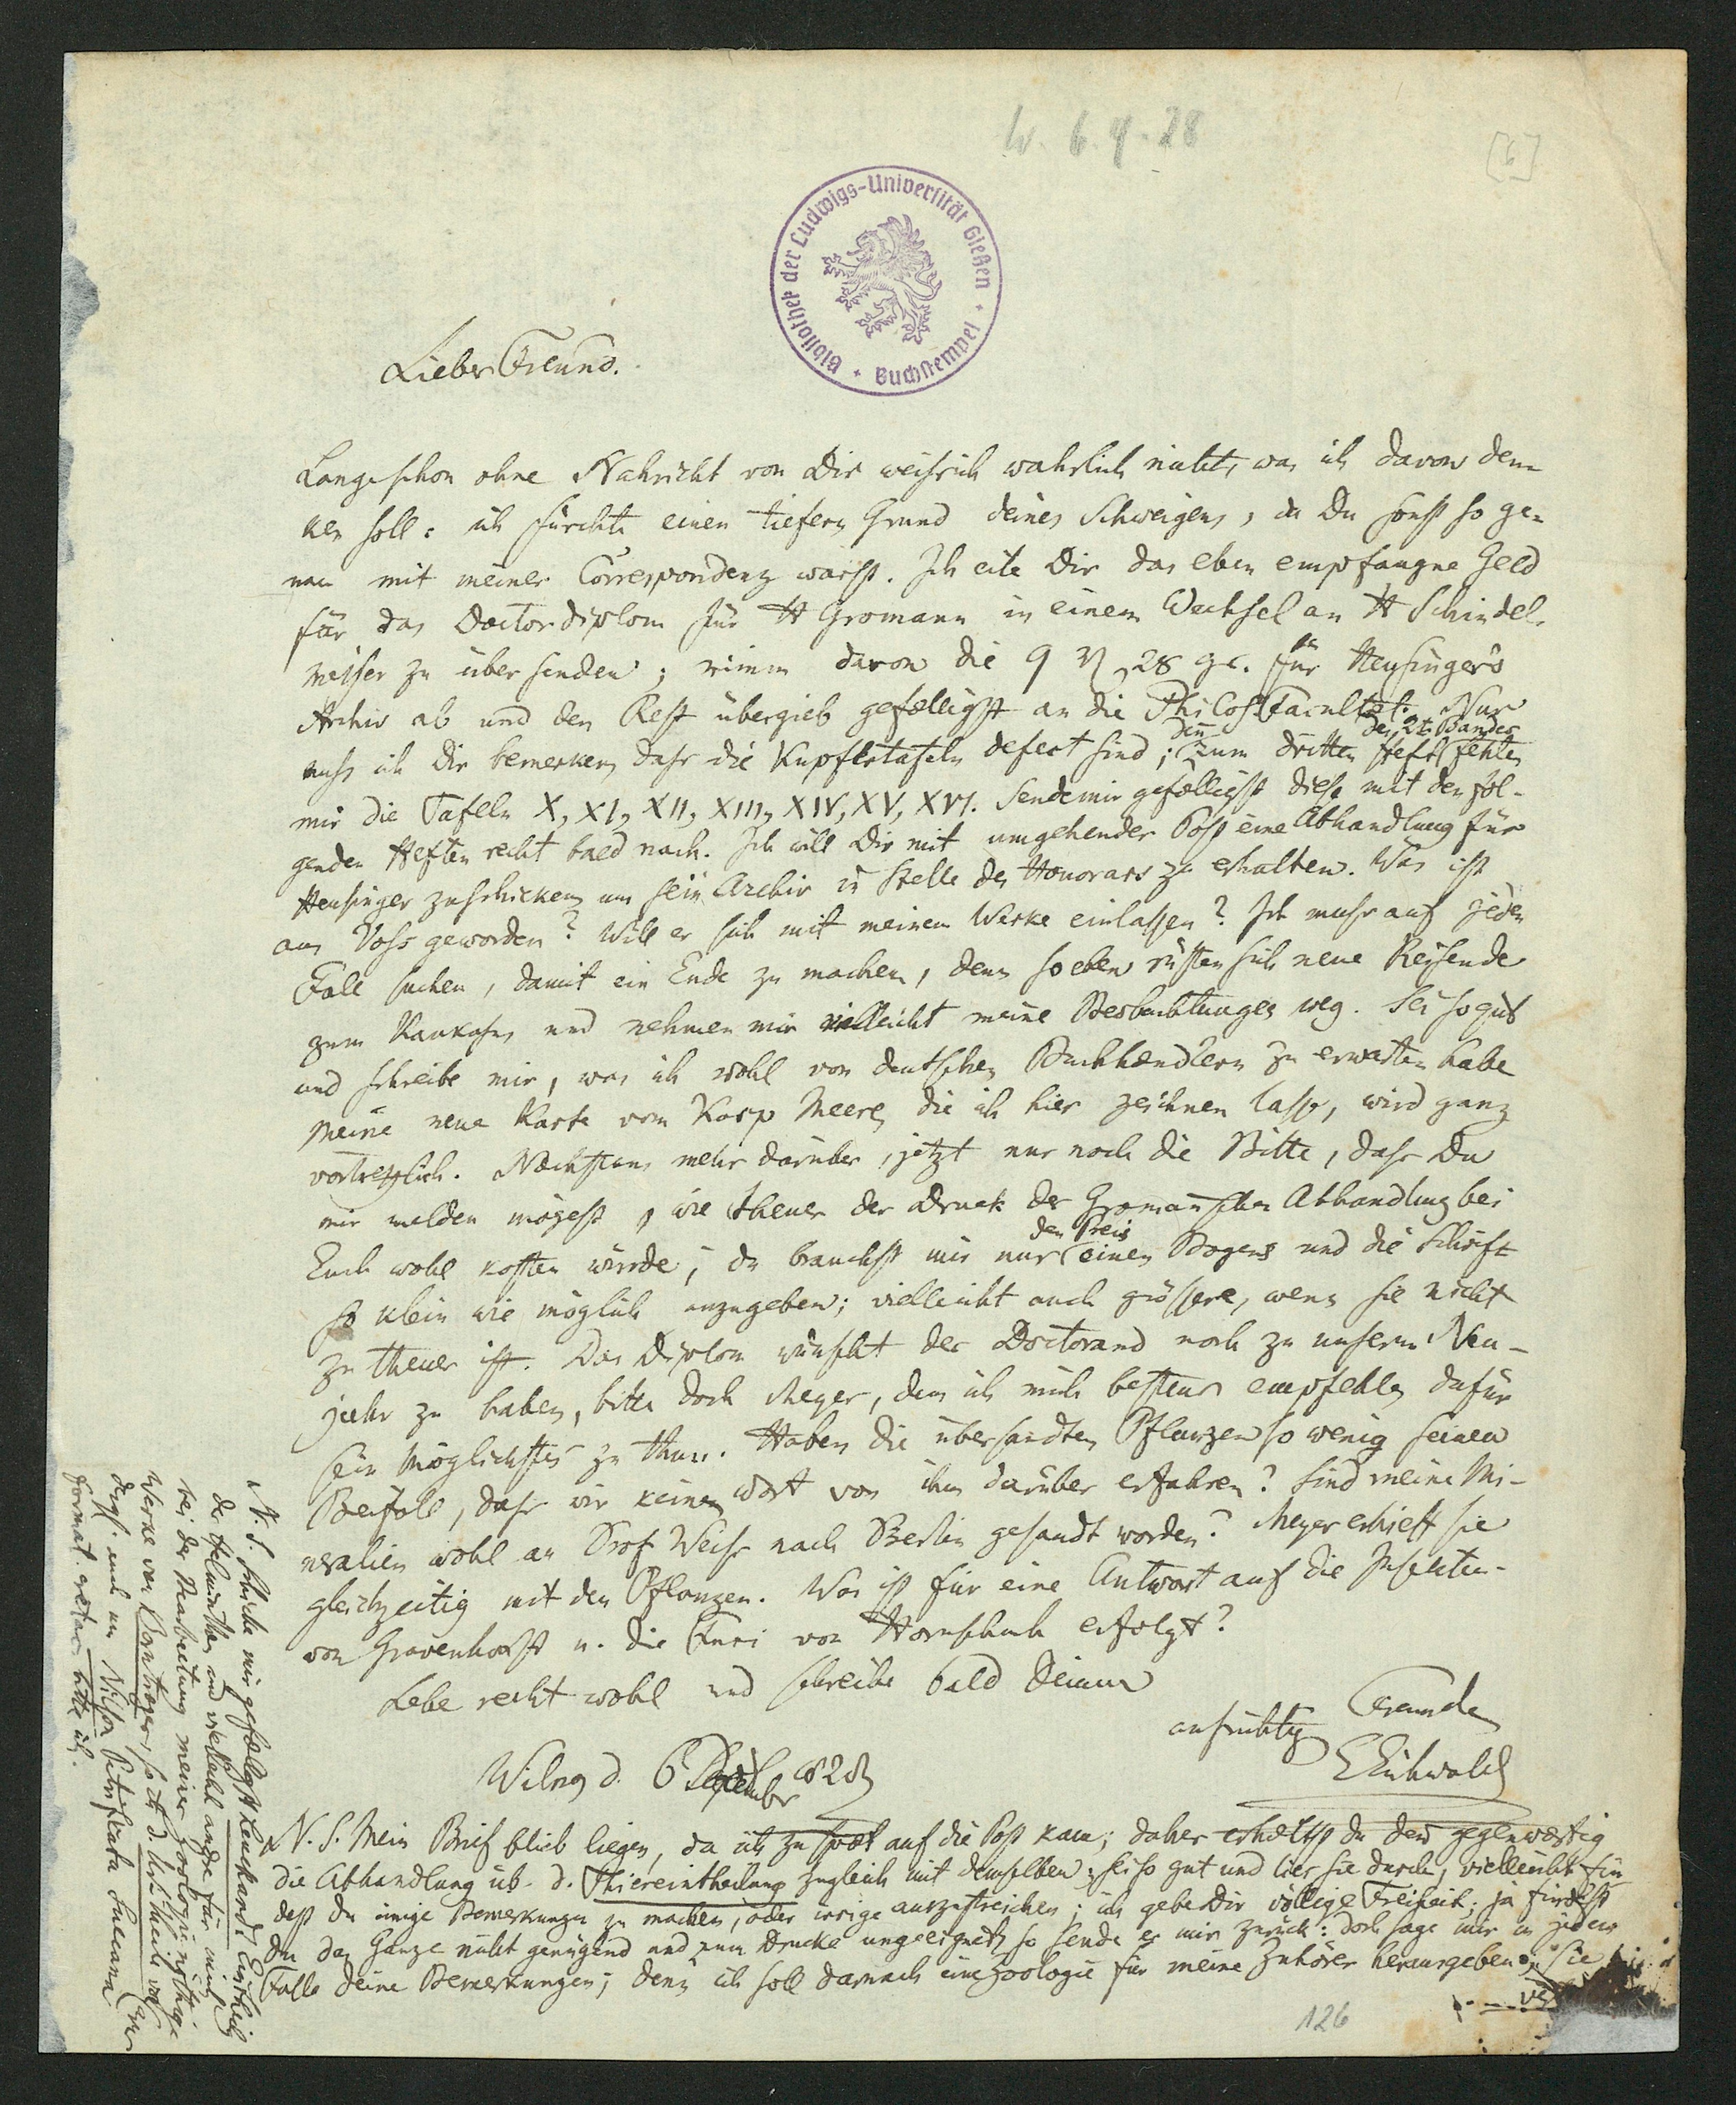 W. 6.9.28
[6]
Bibliothek der Ludwigs-Universität Gießen + Buchstempel +
Lieber Freund.
Lange schon ohne Nahricht von Dir weiss ich wahrlich nicht, was ich davon den=
ken soll: ich fürchte einen tiefern Grund deines Schweigens, da Du sonst so ge=
nau mit meiner Correspondenz warst. Ich eile Dir das eben empfangne Geld
für das Doctordiplom für H Gromann in einem Wechsel an H Schindel-
meiser zu übersenden; nimm davon die 9 28 gr. für Heusinger's
Archiv ab und den Rest übergieb gefælligst an die Philos. Facultæt. Nur
muss ich Dir bemerken, dass die Kupfertafeln defect sind; denn zum dritten Heft des 2t. Bandes fehlen
mir die Tafeln X, XI, XII, XIII, XIV, XV, XVI. Sende mir gefælligst diese mit den fol-
genden Heften recht bald nach. Ich will Dir mit umgehender Post eine Abhandlung für
Heusinger zuschicken, um sein Archiv in Stelle des Honorars zu erhalten. Was ist
aus Voss geworden? Will er sich mit meinem Werke einlassen? Ich muss auf jeden
Fall suchen, damit ein Ende zu machen, denn so eben rüsten sich neue Reisende
zum Kaukasus und nehmen mir vielleicht meine Beobachtungen weg. Sei so gut
und schreibe mir, was ich wohl von deutschen Buchhændlern zu erwarten habe
Meine neue Karte vom Kasp Meere, die ich hier zeichnen lasse, wird ganz
vortrefflich. Næchstens mehr darüber, jetzt nur noch die Bitte, dass Du
mir melden mögest, wie theuer der Druck der Gromannschen Abhandlung bei
Euch wohl kosten würde; du brauchst mir nur den Preis eines Bogens und die Schrift
so klein wie möglich anzugeben; vielleicht auch grössere, wenn sie nicht
zu theuer ist. Das Diplom wünscht der Doctorand noch zu unserm Neu-
jahr zu haben, bitte doch Meyer, dem ich mich bestens empfehle, dafür
sein Möglichstes zu thun. Haben die übersandten Pflanzen so wenig seinen
Beifall, dass wir kein Wort von ihm darüber erfahren? Sind meine Mi-
neralien wohl an Prof Weiss nach Berlin gesandt worden? Meyer erhielt sie
gleichzeitig mit den Pflanzen. Was ist für eine Antwort auf die Insekten-
von Gravenhorst u. die von Hornschuch erfolgt?
Lebe recht wohl und schreibe bald Deinem
aufrichtig Freunde
EEichwald
Wilna d. 6 828
N. S. Mein Brief blieb liegen, da ich zu spæt auf die Post kam; daher erhæltst du den gegenwærtig
die Abhandlung üb. d. Thiereintheilung zugleich mit demselben; sei so gut und lies sie durch, vielleicht fin
dest du einige Bemerkungen zu machen, oder irrige auszustreichen; ich gebe dir völlige Freiheit; ja findest
du das Ganze nicht genügend und zum Drucke ungeeignet, so sende es mir zurück: doch sage mir in jedem
Falle deine Bemerkungen; denn ich soll darnach eine Zoologie für meine Zuhörer herausgeben, sie
N. S. Schicke mir gefælligst Leuckardts
der Helminthen und vielleicht andre für mich
bei der Bearbeitung meiner Zoologie nöthige
Werke von Bornträger, so z. B.
dessgl. auch um Nilson
bitte ich.
126